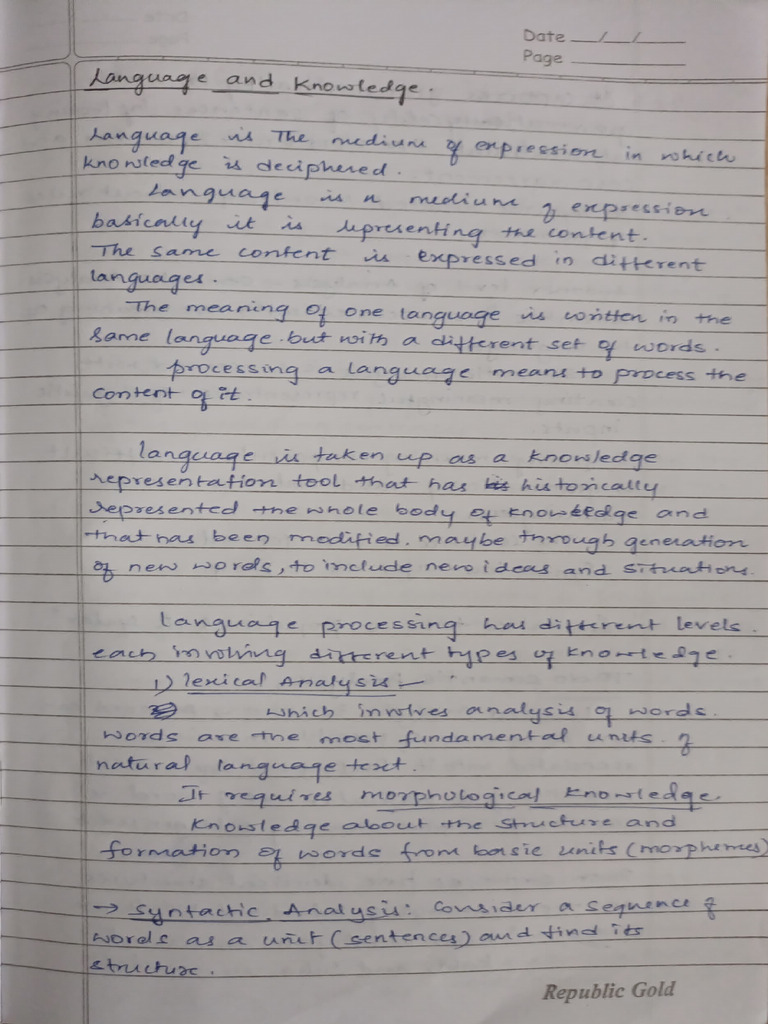 Date __/__/____
Page ________
Language and Knowledge.
Language is The medium of expression in which
knowledge is deciphered.
Language is a medium of expression
basically it is representing the content.
The same content is expressed in different
languages.
The meaning of one language is written in the
same language. but with a different set of words.
processing a language means to process the
content of it.
language is taken up as a knowledge
representation tool that has historically
represented the whole body of knowledge and
that has been modified. maybe through generation
of new words, to include new ideas and situations.
Language processing has different levels.
each involving different types of knowledge.
1) lexical Analysis -
which involves analysis of words.
words are the most fundamental units of
natural language text.
It requires morphological knowledge.
Knowledge about the structure and
formation of words from basic units (morphemes)
→ Syntactic Analysis: Consider a sequence of
words as a unit (sentences) and find its
structure.
Republic Gold